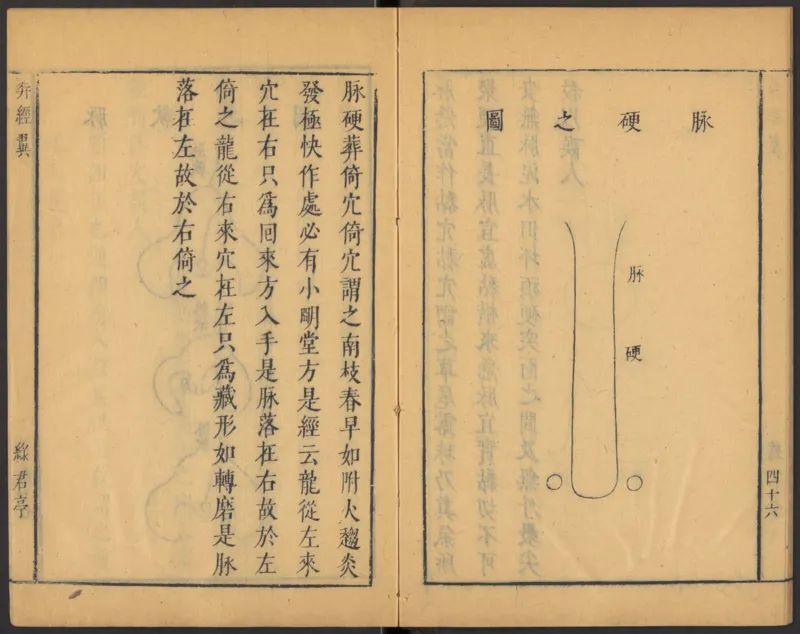 脉硬之圖
脉硬
四十六
脉硬葬倚穴倚穴謂之南枝春早如附火趨炎
發極快作處必有小明堂方是經云龍從左來
穴在右只爲回來方入手是脉落在右故於左
倚之龍從右來穴在左只爲藏形如轉磨是脉
落在左故於右倚之
葬經翼
綠君亭